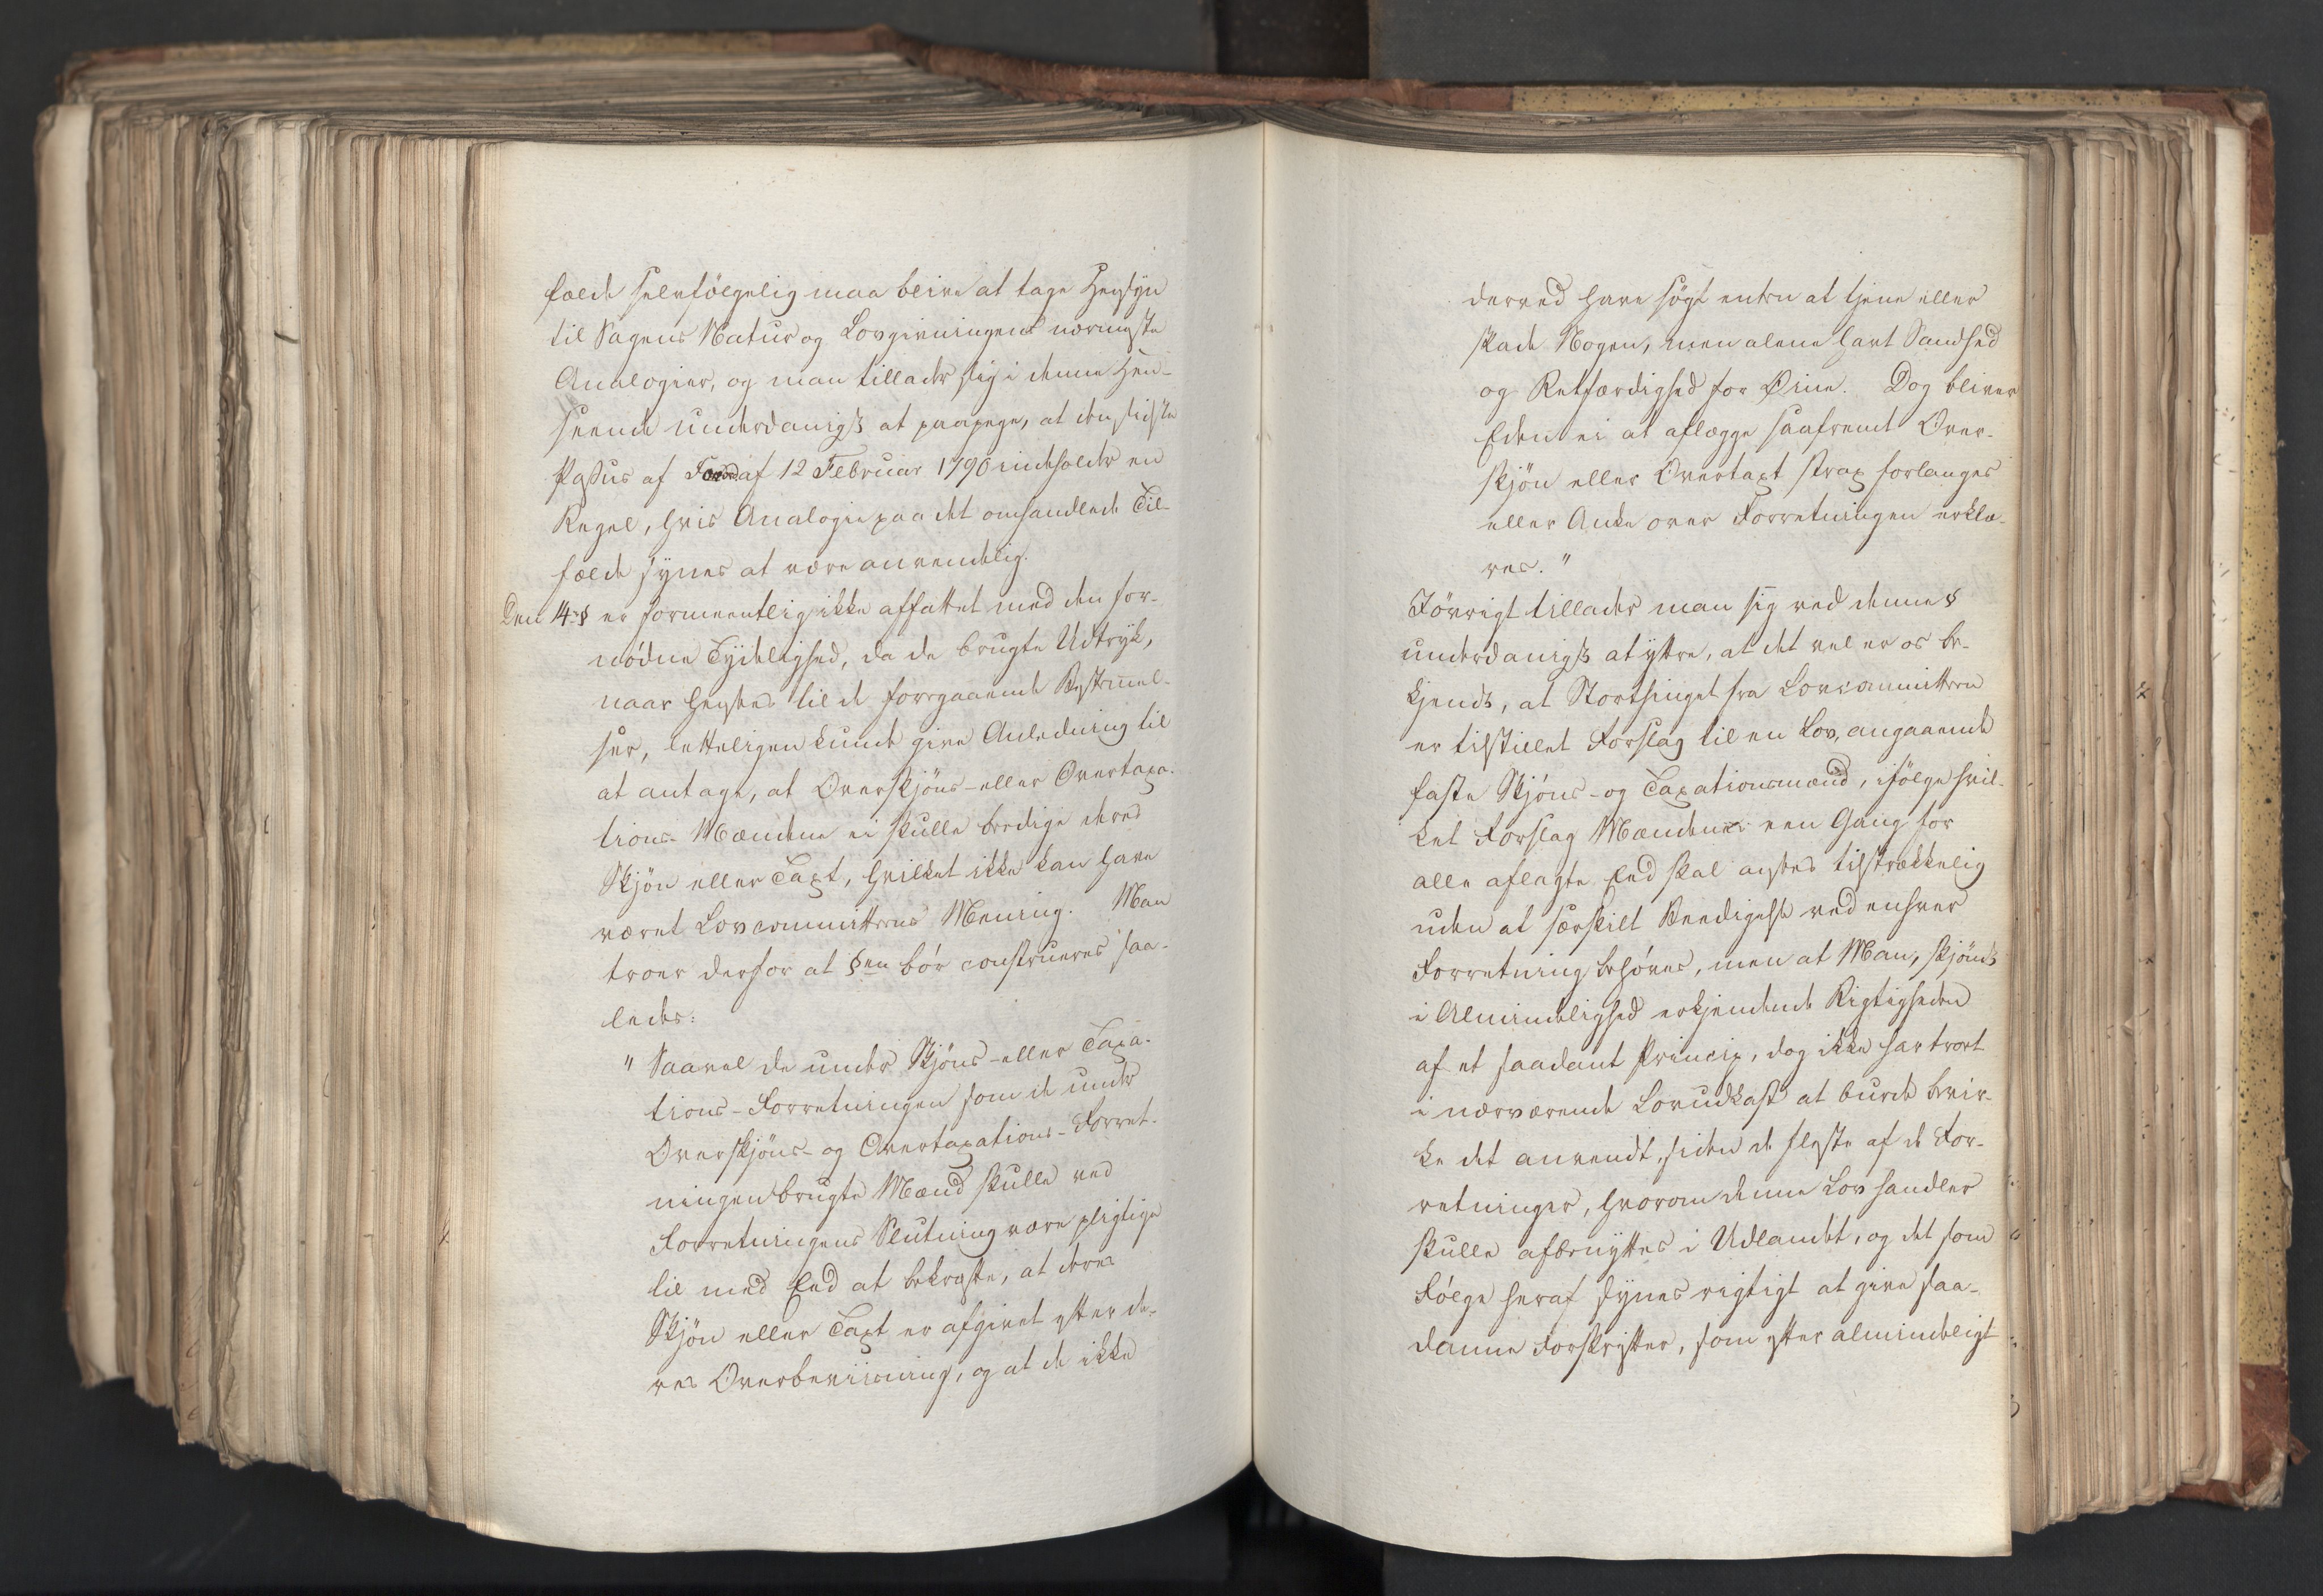 fælde selvfölgelig maa blive at tage Hensyn
til Sagens Natur og Lovgivningens nærmeste
Analogier, og man tillader sig i denne Hen-
seende underdanigst at paapege, at den sidste
Passus af Forord. af 12 Februar 1790 indeholder en
Regel, hvis Analogie paa det omhandlede Til-
fælde synes at være anvendelig.
Den 14de § er formeentlig ikke affattet med den for-
nödne Tydelighed, da de brugte Udtryk,
naar hensees til de foregaaende Bestemmel-
ser, letteligen kunde give Anledning til
at antage, at Overskjöns- eller Overtaxa-
tions-Mændene ei skulle beedige deres
Skjön eller Taxt, hvilket ikke kan have
været Lovcommitteens Mening. Man
troer derfor at §en bör construeres saa-
ledes:
" Saavel de under Skjöns- eller Taxa-
tions-Forretningen som de under
Overskjöns- og Overtaxations-Forret-
ningen brugte Mænd skulle ved
Forretningens Slutning være pligtige
til med Eed at bekræfte, at deres
Skjön eller Taxt er afgivet efter de-
res Overbeviisning, og at de ikke
derved have sögt enten at tjene eller
skade Nogen, men alene havt Sandhed
og Retfærdighed for Öine. Dog bliver
Eden ei at aflægge saafremt Over-
skjön eller Overtaxt strax forlanges
eller Anke over Forretningen erklæ-
res."
Iövrigt tillader man sig ved denne §
underdanigst at yttre, at det vel er os be-
kjendt, at Storthinget fra Lovcommitteen
er tilstillet Forslag til en Lov, angaaende
faste Skjöns- og Taxationsmænd, ifölge hvil-
ket Forslag Mændenes een Gang for
alle aflagte Eed skal ansees tilstrækkelig
uden at særskilt Beedigelse ved enhver
Forretning behöves, men at Man, skjöndt
i Almindelighed erkjendende Rigtigheden
af et saadant Princip, dog ikke har troet
i nærværende Lovudkast at burde bevir-
ke det anvendt, siden de fleste af de For-
retninger, hvorom denne Lov handler
skulle afbenyttes i Udlandet, og det som
Fölge heraf synes rigtigt at give saa-
danne Forskrifter, som efter almindeligt